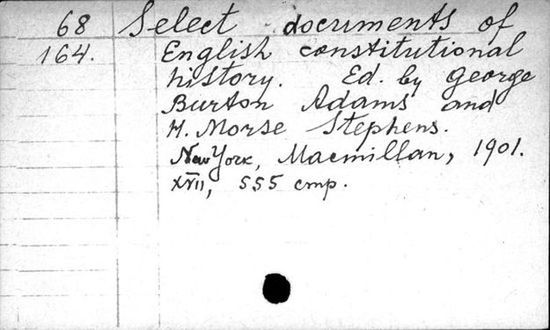 68 Select documents of
164. English constitutional
history. Ed. by George
Burton Adams and
H. Morse Stephens.
New York, Macmillan, 1901.
XVII, 555 cmp.